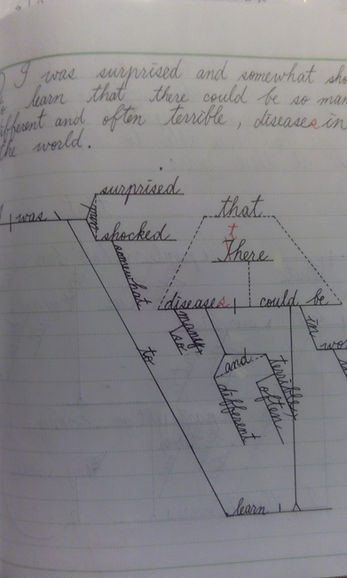 I was surprised and somewhat sho
learn that there could be so man
ifferent and often terrible, diseases in
the world.
surprised
that
was
and
t
shocked
There
somewhat
diseases
could be
many
so
in
wo
to
and
terrible
different
often
learn